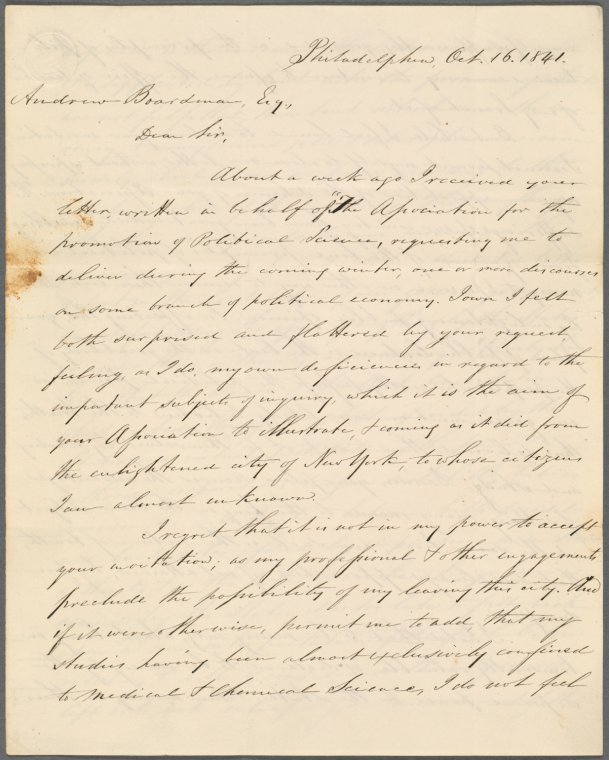 Philadelphia, Oct. 16. 1841.
Andrew Boardman, Esq,
Dear Sir,
About a week ago I received your
letter, written in behalf of "The Association for the
promotion of Political Science, requesting me to
deliver during the coming winter, one or more discourses
on some branch of political economy. I own I felt
both surprised and flattered by your request,
feeling, as I do, my own deficiencies in regard to the
important subjects of inquiry, which it is the aim of
your Association to illustrate, & coming as it did from
the enlightened city of New York, to whose citizens
I am almost unknown.
I regret that it is not in my power to accept
your invitation; as my professional & other engagements
preclude the possibility of my leaving this city. And
if it were otherwise, permit me to add, that my
studies having been almost exclusively confined
to Medical & Chemical Science, I do not feel